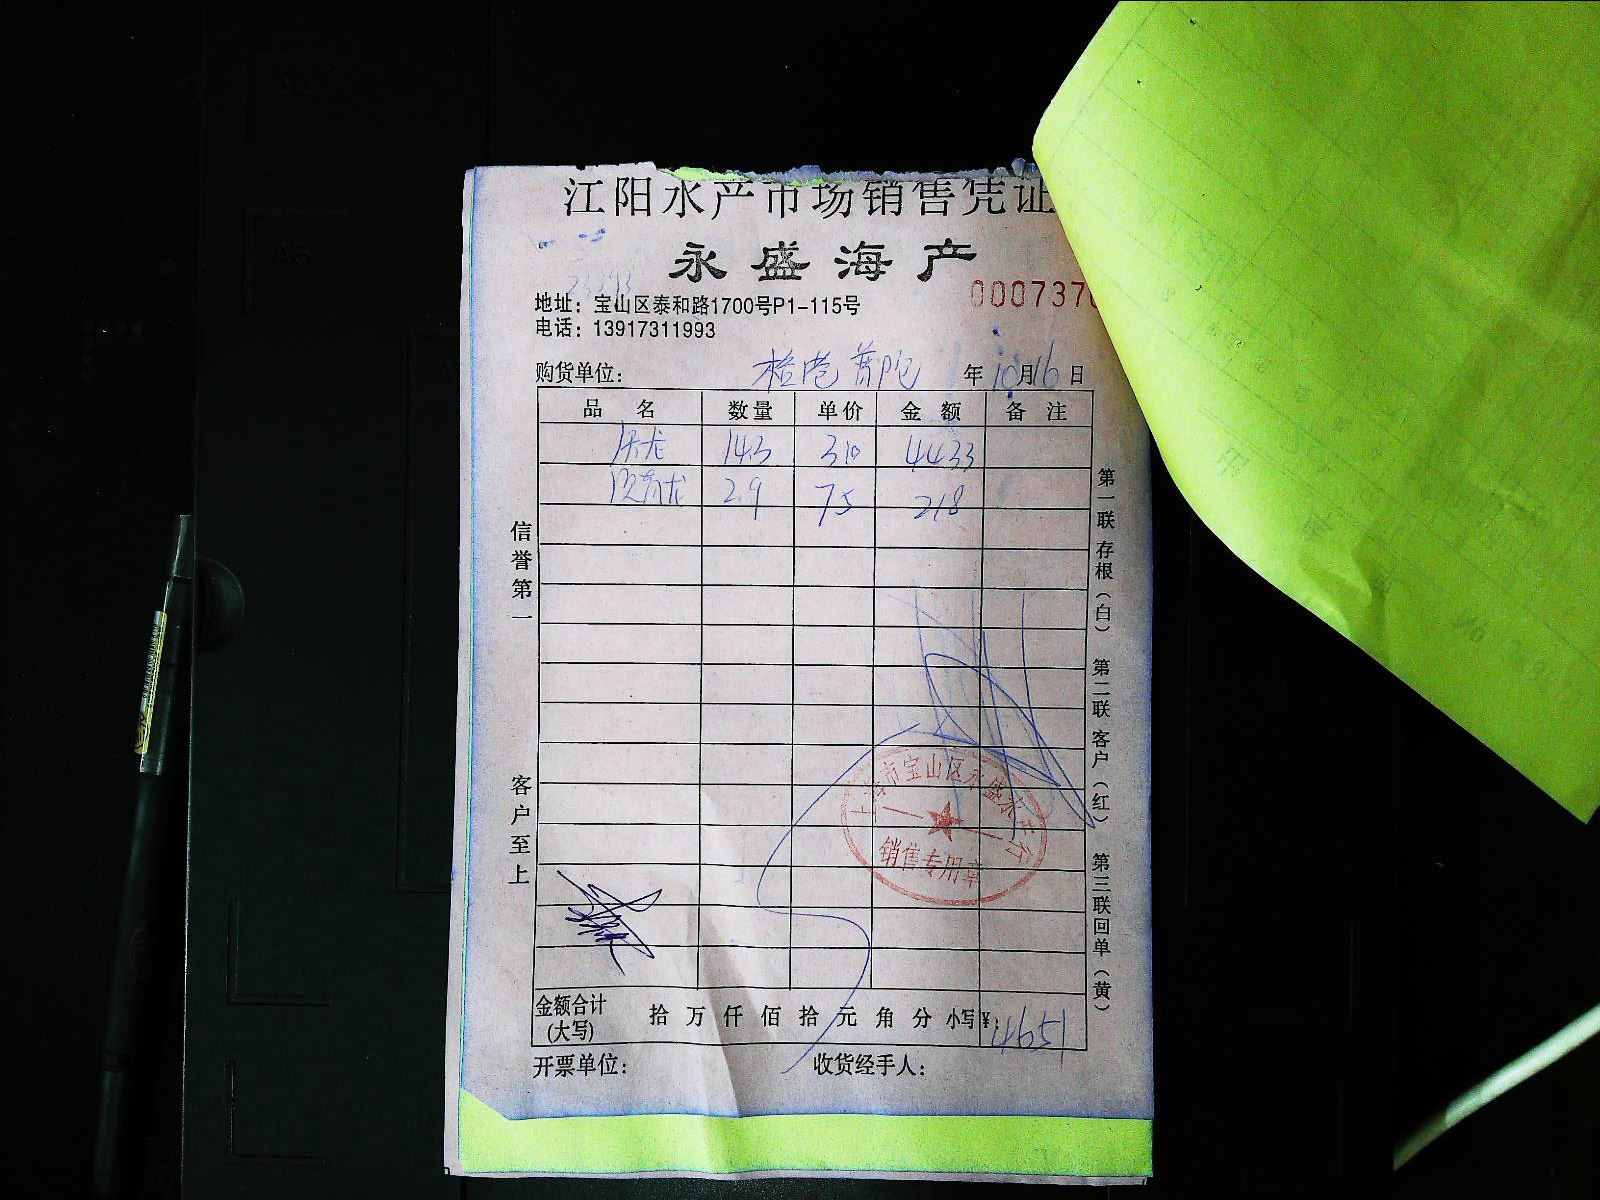 江阳水产市场销售凭证
永盛海产
000737
地址：宝山区泰和路1700号P1-115号
电话：13917311993
购货单位： 普陀 年 10 月 16 日
品 名 数量 单价 金 额 备 注
143 310 4433
2.9 75 218
信誉第一
客户至上
第一联 存根（白） 第二联 客户（红） 第三联 回单（黄）
市宝山区永盛水产行
销售专用章
金额合计 拾 万 仟 佰 拾 元 角 分 小写¥: 4651
(大写)
开票单位： 收货经手人：